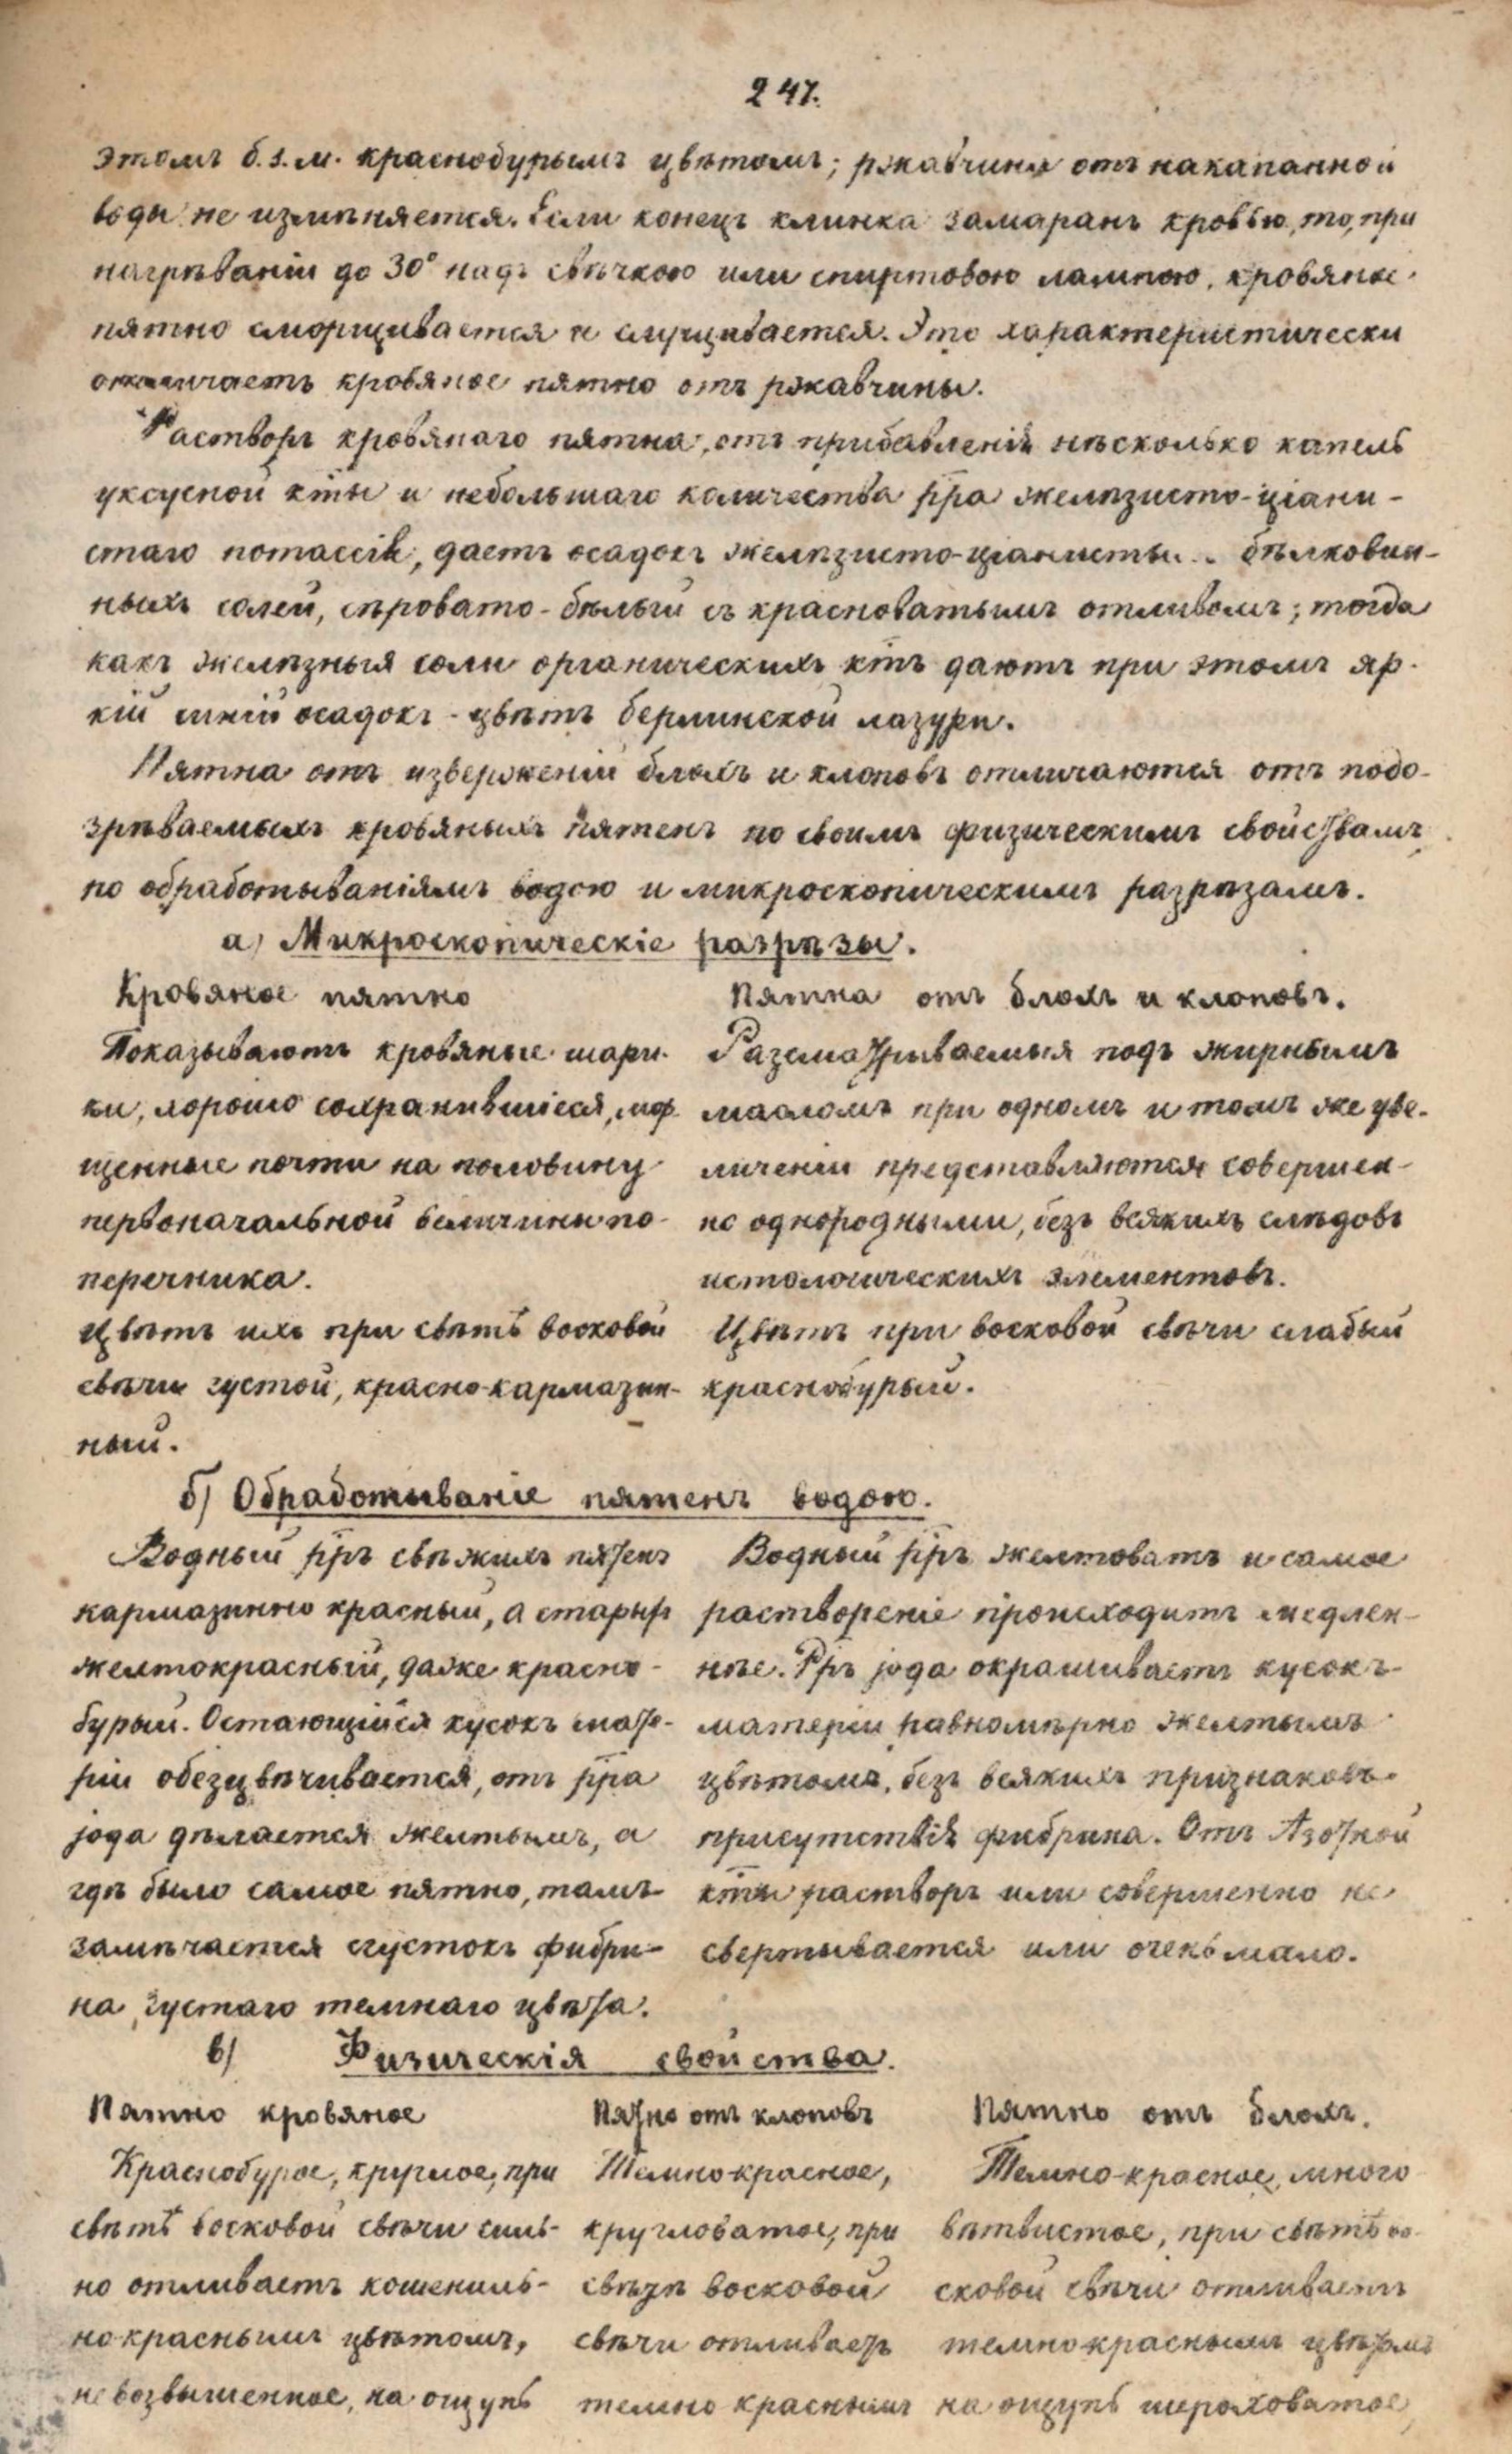 247.
этомъ б. и. м. краснобурымъ цвѣтомъ; ржавчина отъ накапанной
воды не измѣняется. Если конецъ клинка замаранъ кровью, то, при
нагрѣваніи до 30° надъ свѣчкою или спиртовою лампою, кровяное
пятно сморщивается и слущивается. Это характеристически
отличаетъ кровяное пятно отъ ржавчины.
Растворъ кровянаго пятна, отъ прибавленія нѣсколько капель
уксусной кты и небольшаго количества рра желѣзисто-ціани-
стаго потассія, даетъ осадокъ желѣзисто-ціанисты.. бѣлковин-
ныхъ солей, сѣровато-бѣлый съ красноватымъ отливомъ; тогда
какъ желѣзныя соли органическихъ ктъ даютъ при этомъ яр-
кій синій осадокъ - цвѣтъ берлинской лазури.
Пятна отъ изверженій блохъ и клоповъ отличаются отъ подо-
зрѣваемыхъ кровяныхъ пятенъ по своимъ физическимъ свойствамъ,
по обработываніямъ водою и микроскопическимъ разрѣзамъ.
а) Микроскопическіе разрѣзы.
Кровяное пятно
Показываютъ кровяные шари-
ки, хорошо сохранившіеся,
щенные почти на половину
первоначальной величины по-
перечника.
Цвѣтъ ихъ при свѣтѣ восковой
свѣчи густой, красно-кармазин-
ный.
Пятна отъ блохъ и клоповъ.
Разсматриваемыя подъ жирнымъ
масломъ при одномъ и томъ же уве-
личеніи представляются совершен-
но однородными, безъ всякихъ слѣдовъ
истологическихъ элементовъ.
Цвѣтъ при восковой свѣчи слабый
краснобурый.
б) Обработываніе пятенъ водою.
Водный рръ свѣжихъ пятенъ
кармазинно красный, а старыхъ
желтокрасный, даже красно-
бурый. Остающійся кусокъ мате-
ріи обезцвѣчивается, отъ рра
јода дѣлается желтымъ, а
гдѣ было самое пятно, тамъ
замѣчается сгустокъ фибри-
на, густаго темнаго цвѣта.
Водный рръ желтоватъ и самое
раствореніе происходитъ медлен-
нѣе. Рръ јода окрашиваетъ кусокъ
матеріи равномѣрно желтымъ
цвѣтомъ, безъ всякихъ признаковъ
присутствія фибрина. Отъ Азотной
кты растворъ или совершенно не
свертывается или очень мало.
в) Физическія свойства.
Пятно кровяное
Краснобурое, круглое, при
свѣтѣ восковой свѣчи силь-
но отливаетъ кошениль-
но-краснымъ цвѣтомъ,
невозвышенное, на ощупь
Пятно отъ клоповъ
Темно-красное,
кругловатое, при
свѣчѣ восковой
свѣчи отливаетъ
темно краснымъ
Пятно отъ блохъ.
Темно-красное, много
вѣтвистое, при свѣтѣ во-
сковой свѣчи отливаетъ
темнокраснымъ цвѣтомъ
на ощупь шероховатое,